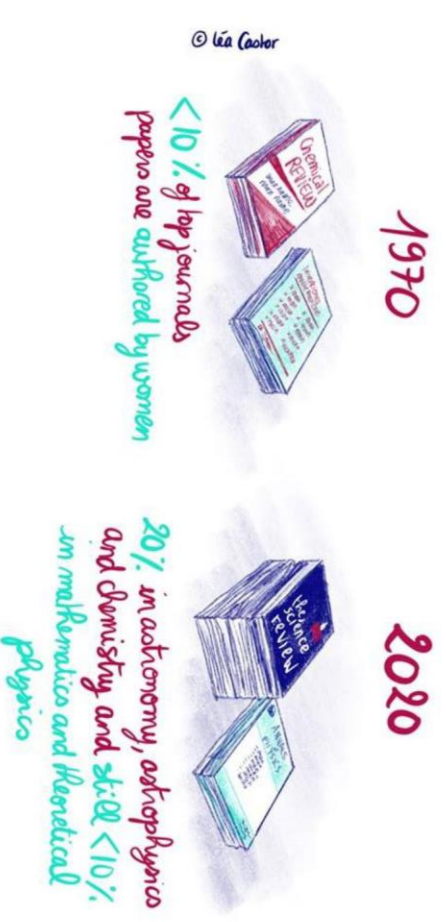 1970
Chemical
REVIEW
<10% of top journals
papers are authored by women
© Léa Castor
2020
the
science
review
20% in astronomy, astrophysics
and chemistry and still <10%
in mathematics and theoretical
physics